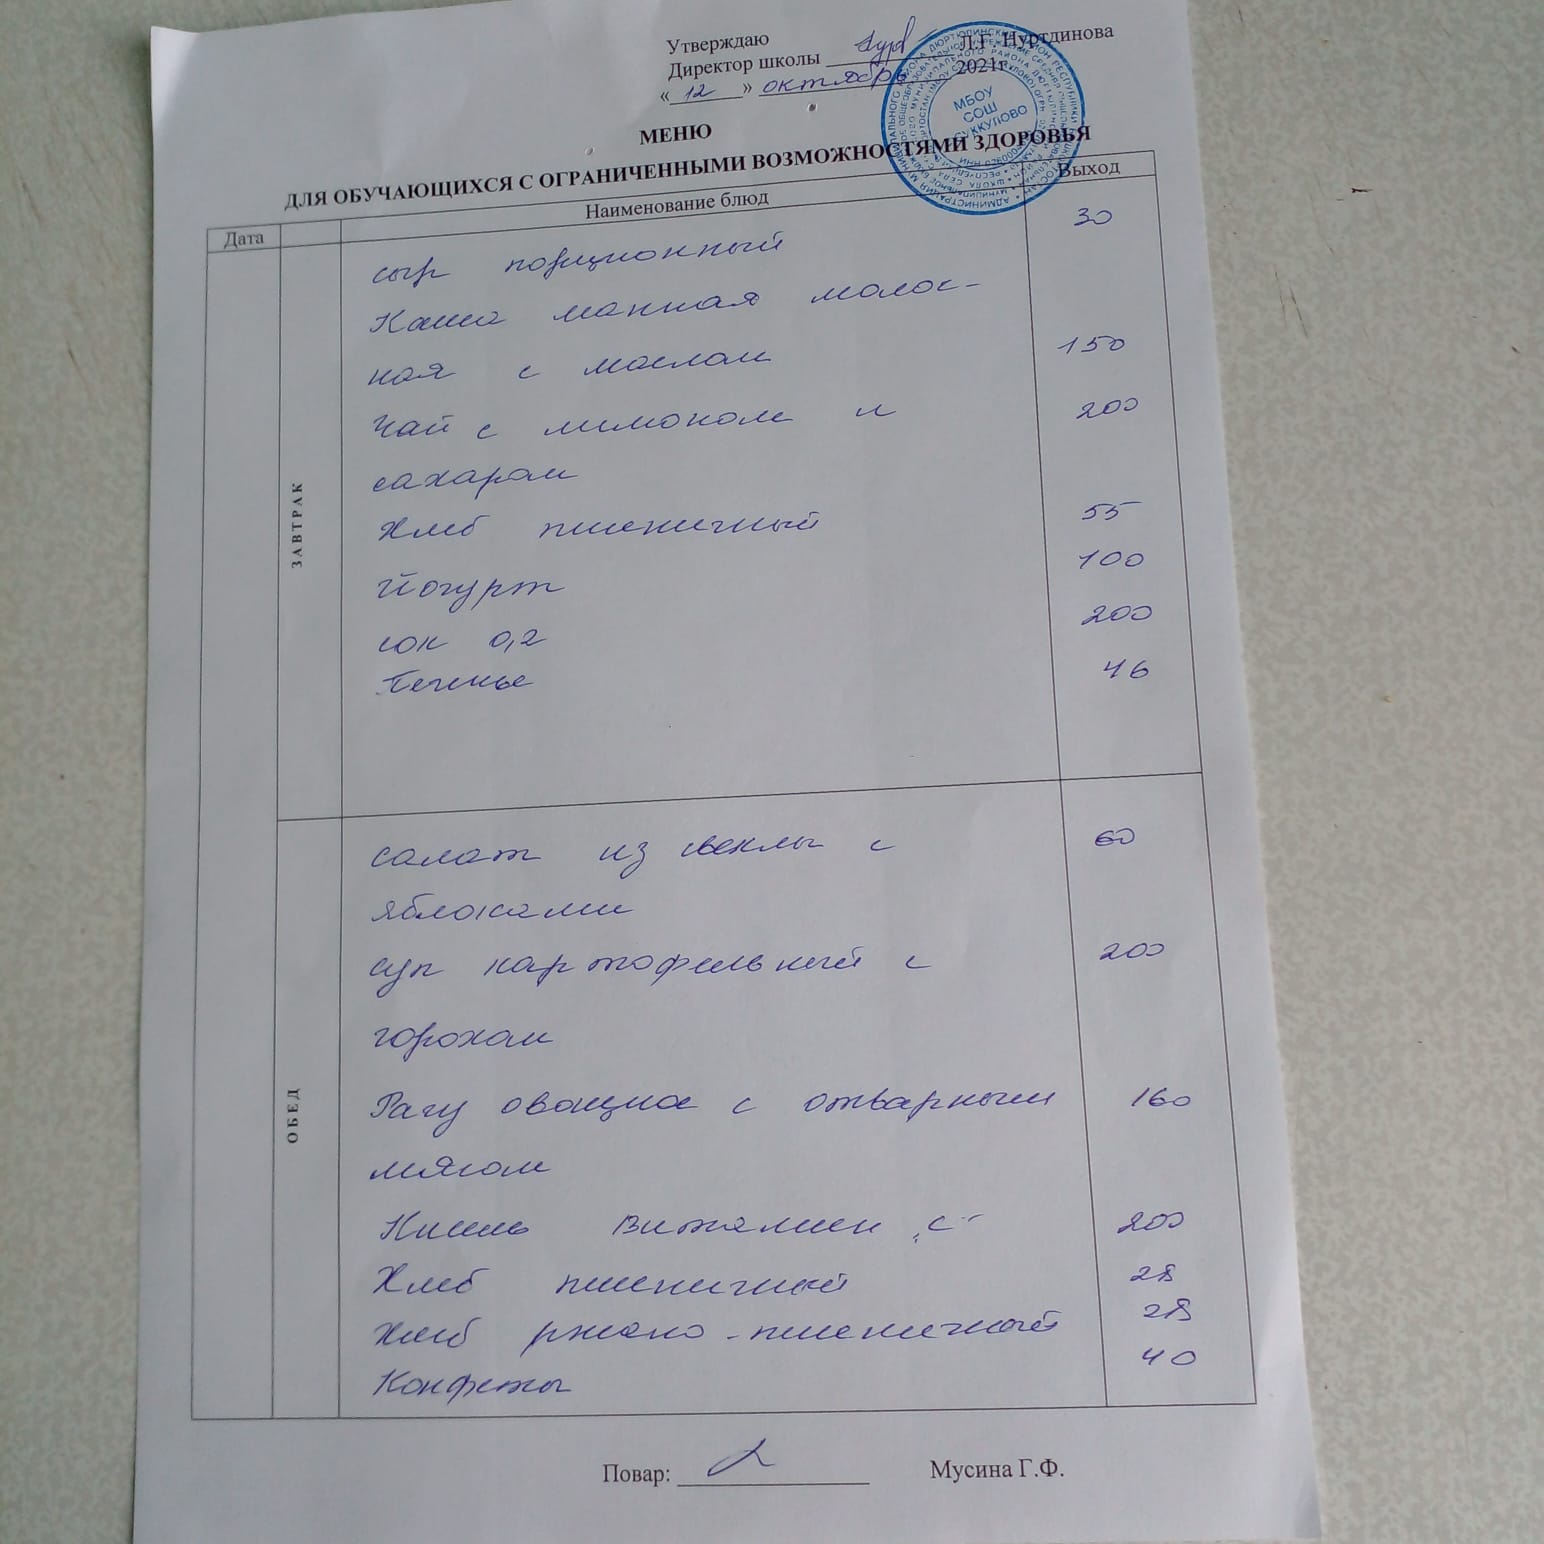 Утверждаю
Директор школы Л.Г. Нуртдинова
«12» октября 2021г
МБОУ
СОШ
С.СУККУЛОВО
МЕНЮ
ДЛЯ ОБУЧАЮЩИХСЯ С ОГРАНИЧЕННЫМИ ВОЗМОЖНОСТЯМИ ЗДОРОВЬЯ
Дата Наименование блюд Выход
ЗАВТРАК
сыр порционный 30
Каша манная молоч-
ная с маслом 150
Чай с лимоном и 200
сахаром
Хлеб пшеничный 55
Йогурт 100
сок 0,2 200
Печенье 46
ОБЕД
салат из свеклы с 60
яблоками
суп картофельный с 200
горохом
Рагу овощное с отварным 160
мясом
Кисель Витамин „С" 200
Хлеб пшеничный 28
Хлеб ржано-пшеничный 28
Конфеты 40
Повар: Мусина Г.Ф.